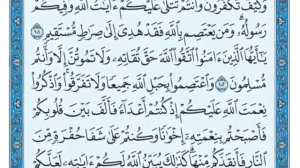 وَكَيْفَ تَكْفُرُونَ وَأَنتُمْ تُتْلَىٰ عَلَيْكُمْ ءَايَٰتُ ٱللَّهِ وَفِيكُمْ
رَسُولُهُۥ وَمَن يَعْتَصِم بِٱللَّهِ فَقَدْ هُدِىَ إِلَىٰ صِرَٰطٍ مُّسْتَقِيمٍ
يَٰٓأَيُّهَا ٱلَّذِينَ ءَامَنُوا۟ ٱتَّقُوا۟ ٱللَّهَ حَقَّ تُقَاتِهِۦ وَلَا تَمُوتُنَّ إِلَّا وَأَنتُم
مُّسْلِمُونَ وَٱعْتَصِمُوا۟ بِحَبْلِ ٱللَّهِ جَمِيعًا وَلَا تَفَرَّقُوا۟ وَٱذْكُرُوا۟
نِعْمَتَ ٱللَّهِ عَلَيْكُمْ إِذْ كُنتُمْ أَعْدَآءً فَأَلَّفَ بَيْنَ قُلُوبِكُمْ
فَأَصْبَحْتُم بِنِعْمَتِهِۦٓ إِخْوَٰنًا وَكُنتُمْ عَلَىٰ شَفَا حُفْرَةٍ مِّنَ
ٱلنَّارِ فَأَنقَذَكُم مِّنْهَا كَذَٰلِكَ يُبَيِّنُ ٱللَّهُ لَكُمْ ءَايَٰتِهِۦ لَعَلَّكُمْ